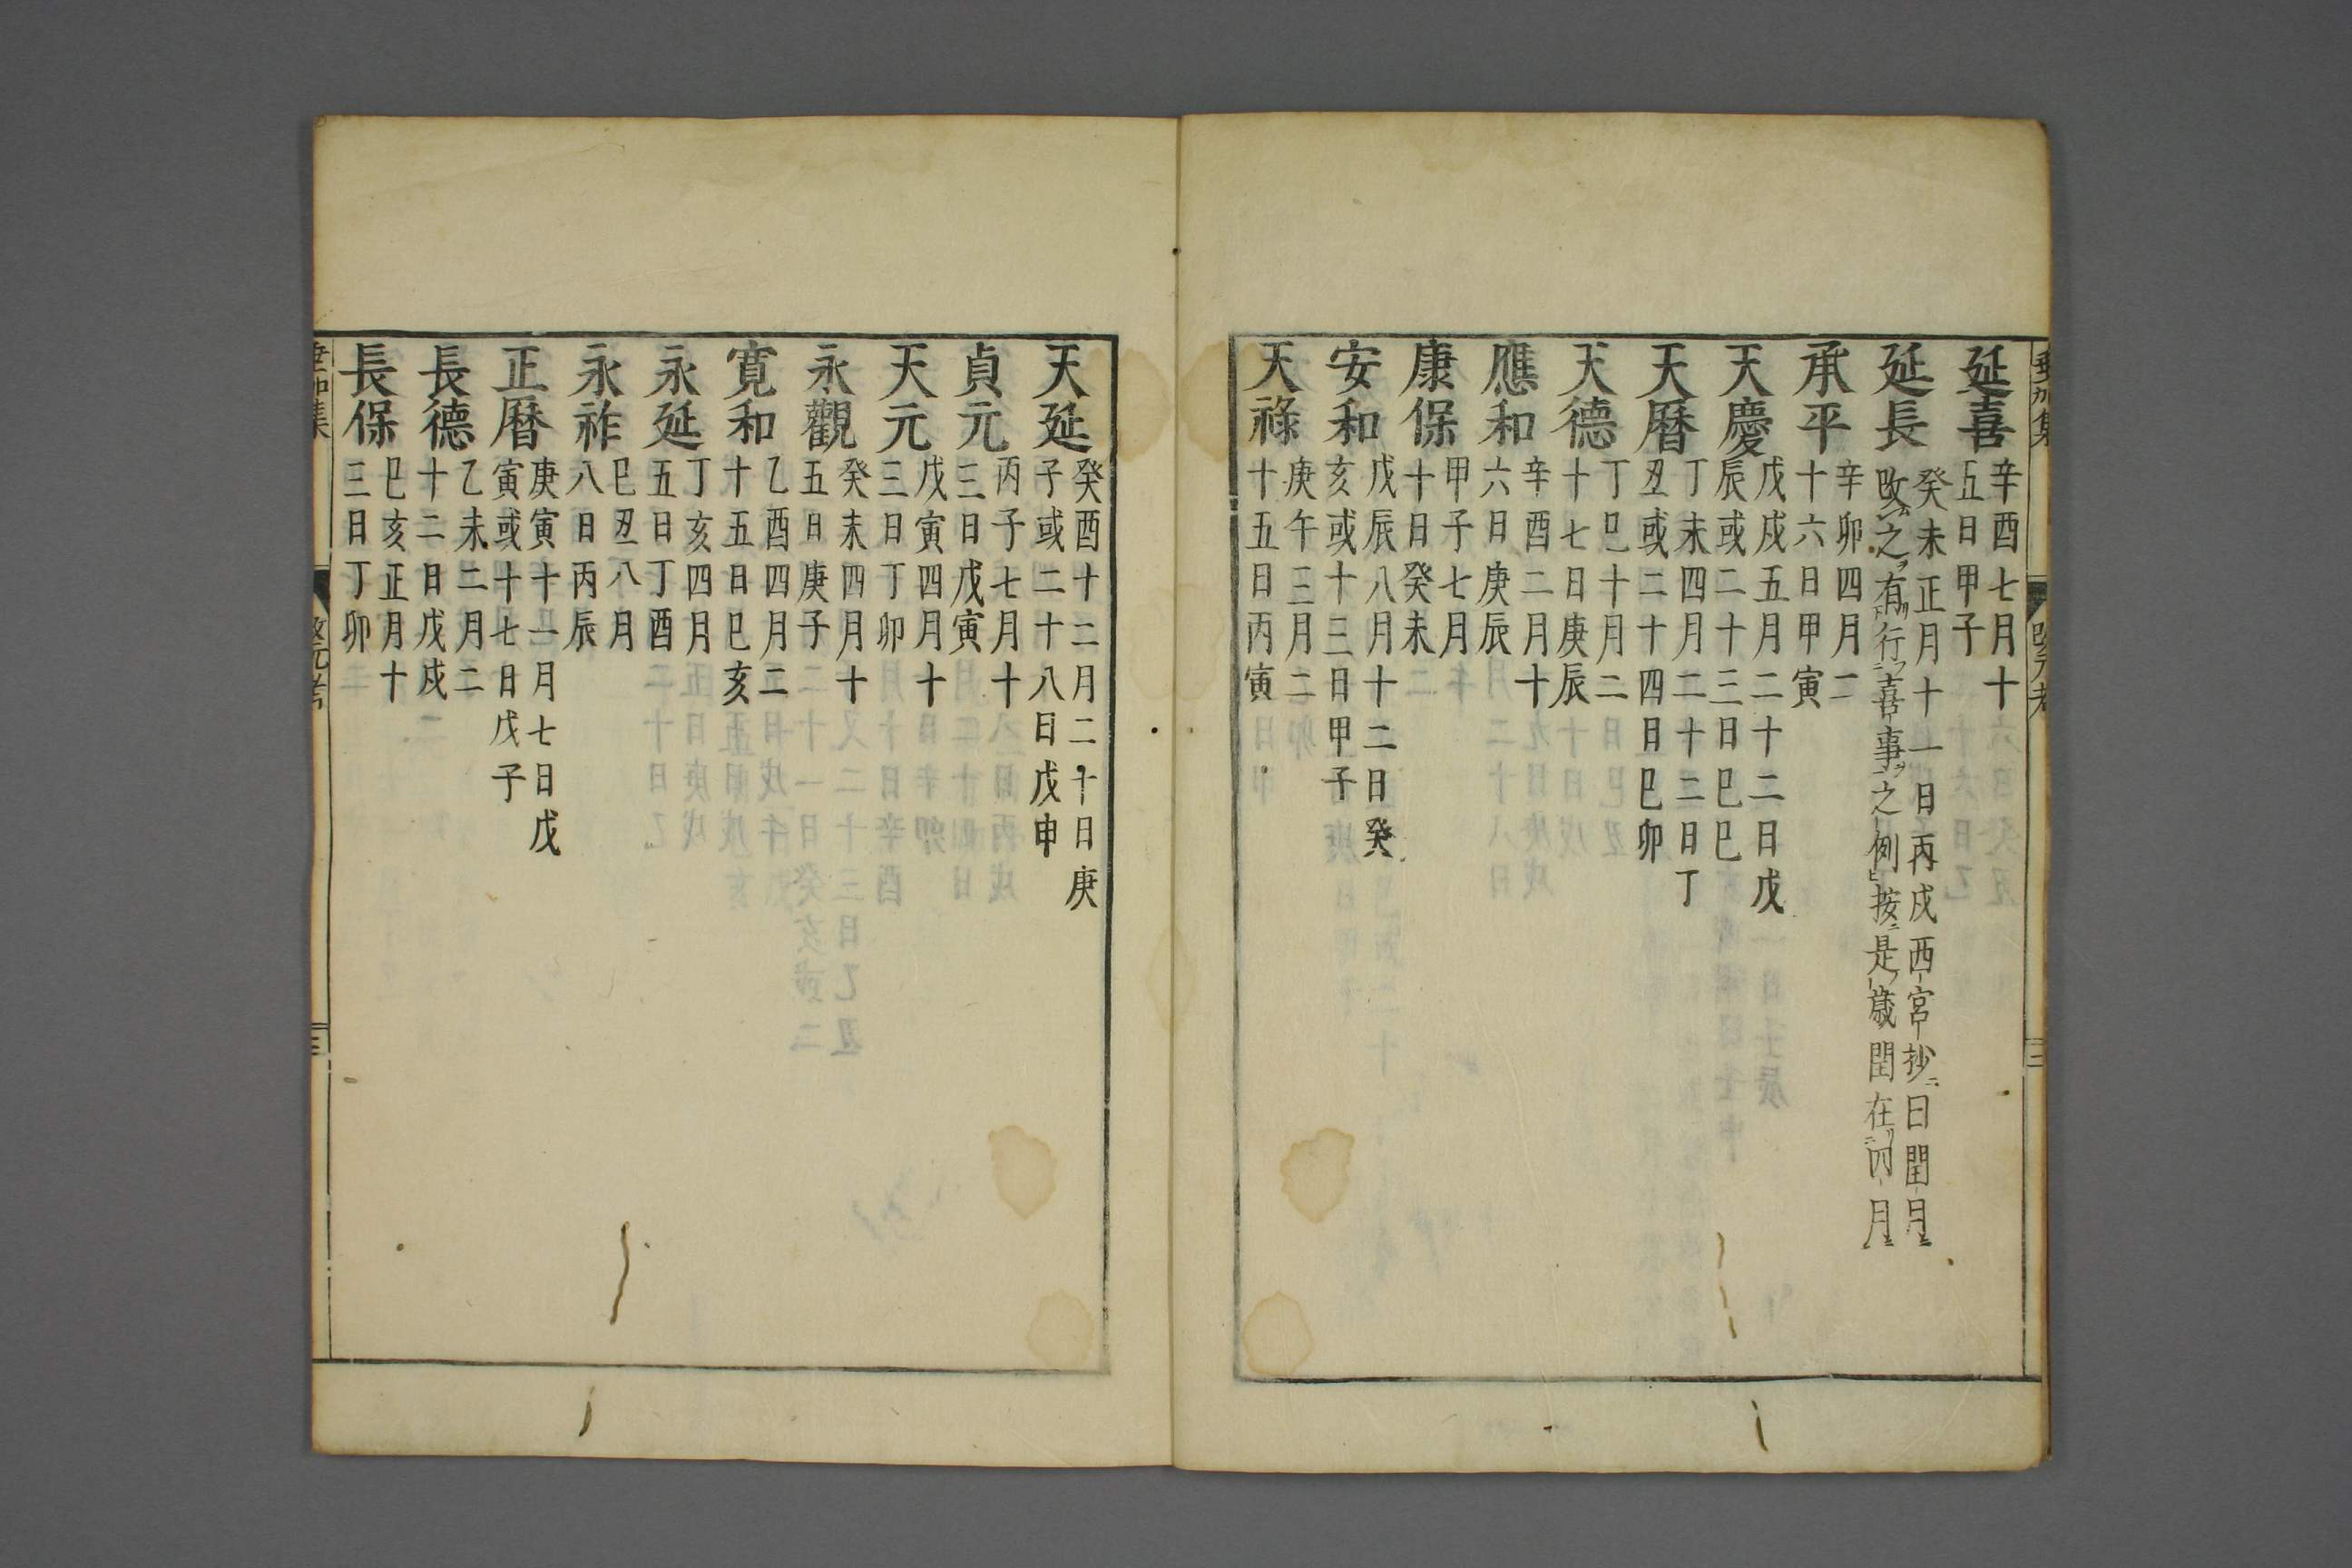 垂加集 改元考
延喜
辛酉七月十
五日甲子
延長
癸未正月十一日丙戌西宮抄曰閏月
改之有行喜事之例按是歳閏在四月
承平
辛卯四月二
十六日甲寅
天慶
戊戌五月二十二日戊
辰或二十三日巳巳
天暦
丁未四月二十二日丁
丑或二十四日巳卯
天德
丁巳十月二
十七日庚辰
應和
辛酉二月十
六日庚辰
康保
甲子七月
十日癸未
安和
戊辰八月十二日癸
亥或十三日甲子
天祿
庚午三月二
十五日丙寅
天延
癸酉十二月二十日庚
子或二十八日戊申
貞元
丙子七月十
三日戊寅
天元
戊寅四月十
三日丁卯
永觀
癸未四月十
五日庚子
寛和
乙酉四月二
十五日巳亥
永延
丁亥四月
五日丁酉
永祚
巳丑八月
八日丙辰
正暦
庚寅十一月七日戊
寅或十七日戊子
長德
乙未二月二
十二日戊戌
長保
巳亥正月十
三日丁卯
垂加集 改元考 三